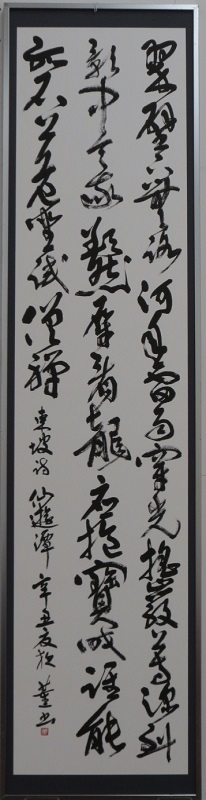 翠壁下無路何年雷雨穿光搖巖上寺深到
影中天我欲燃犀看龍應抱寶眠誰能
孤石上危坐試僧禪東坡詩仙遊潭辛丑夏 書